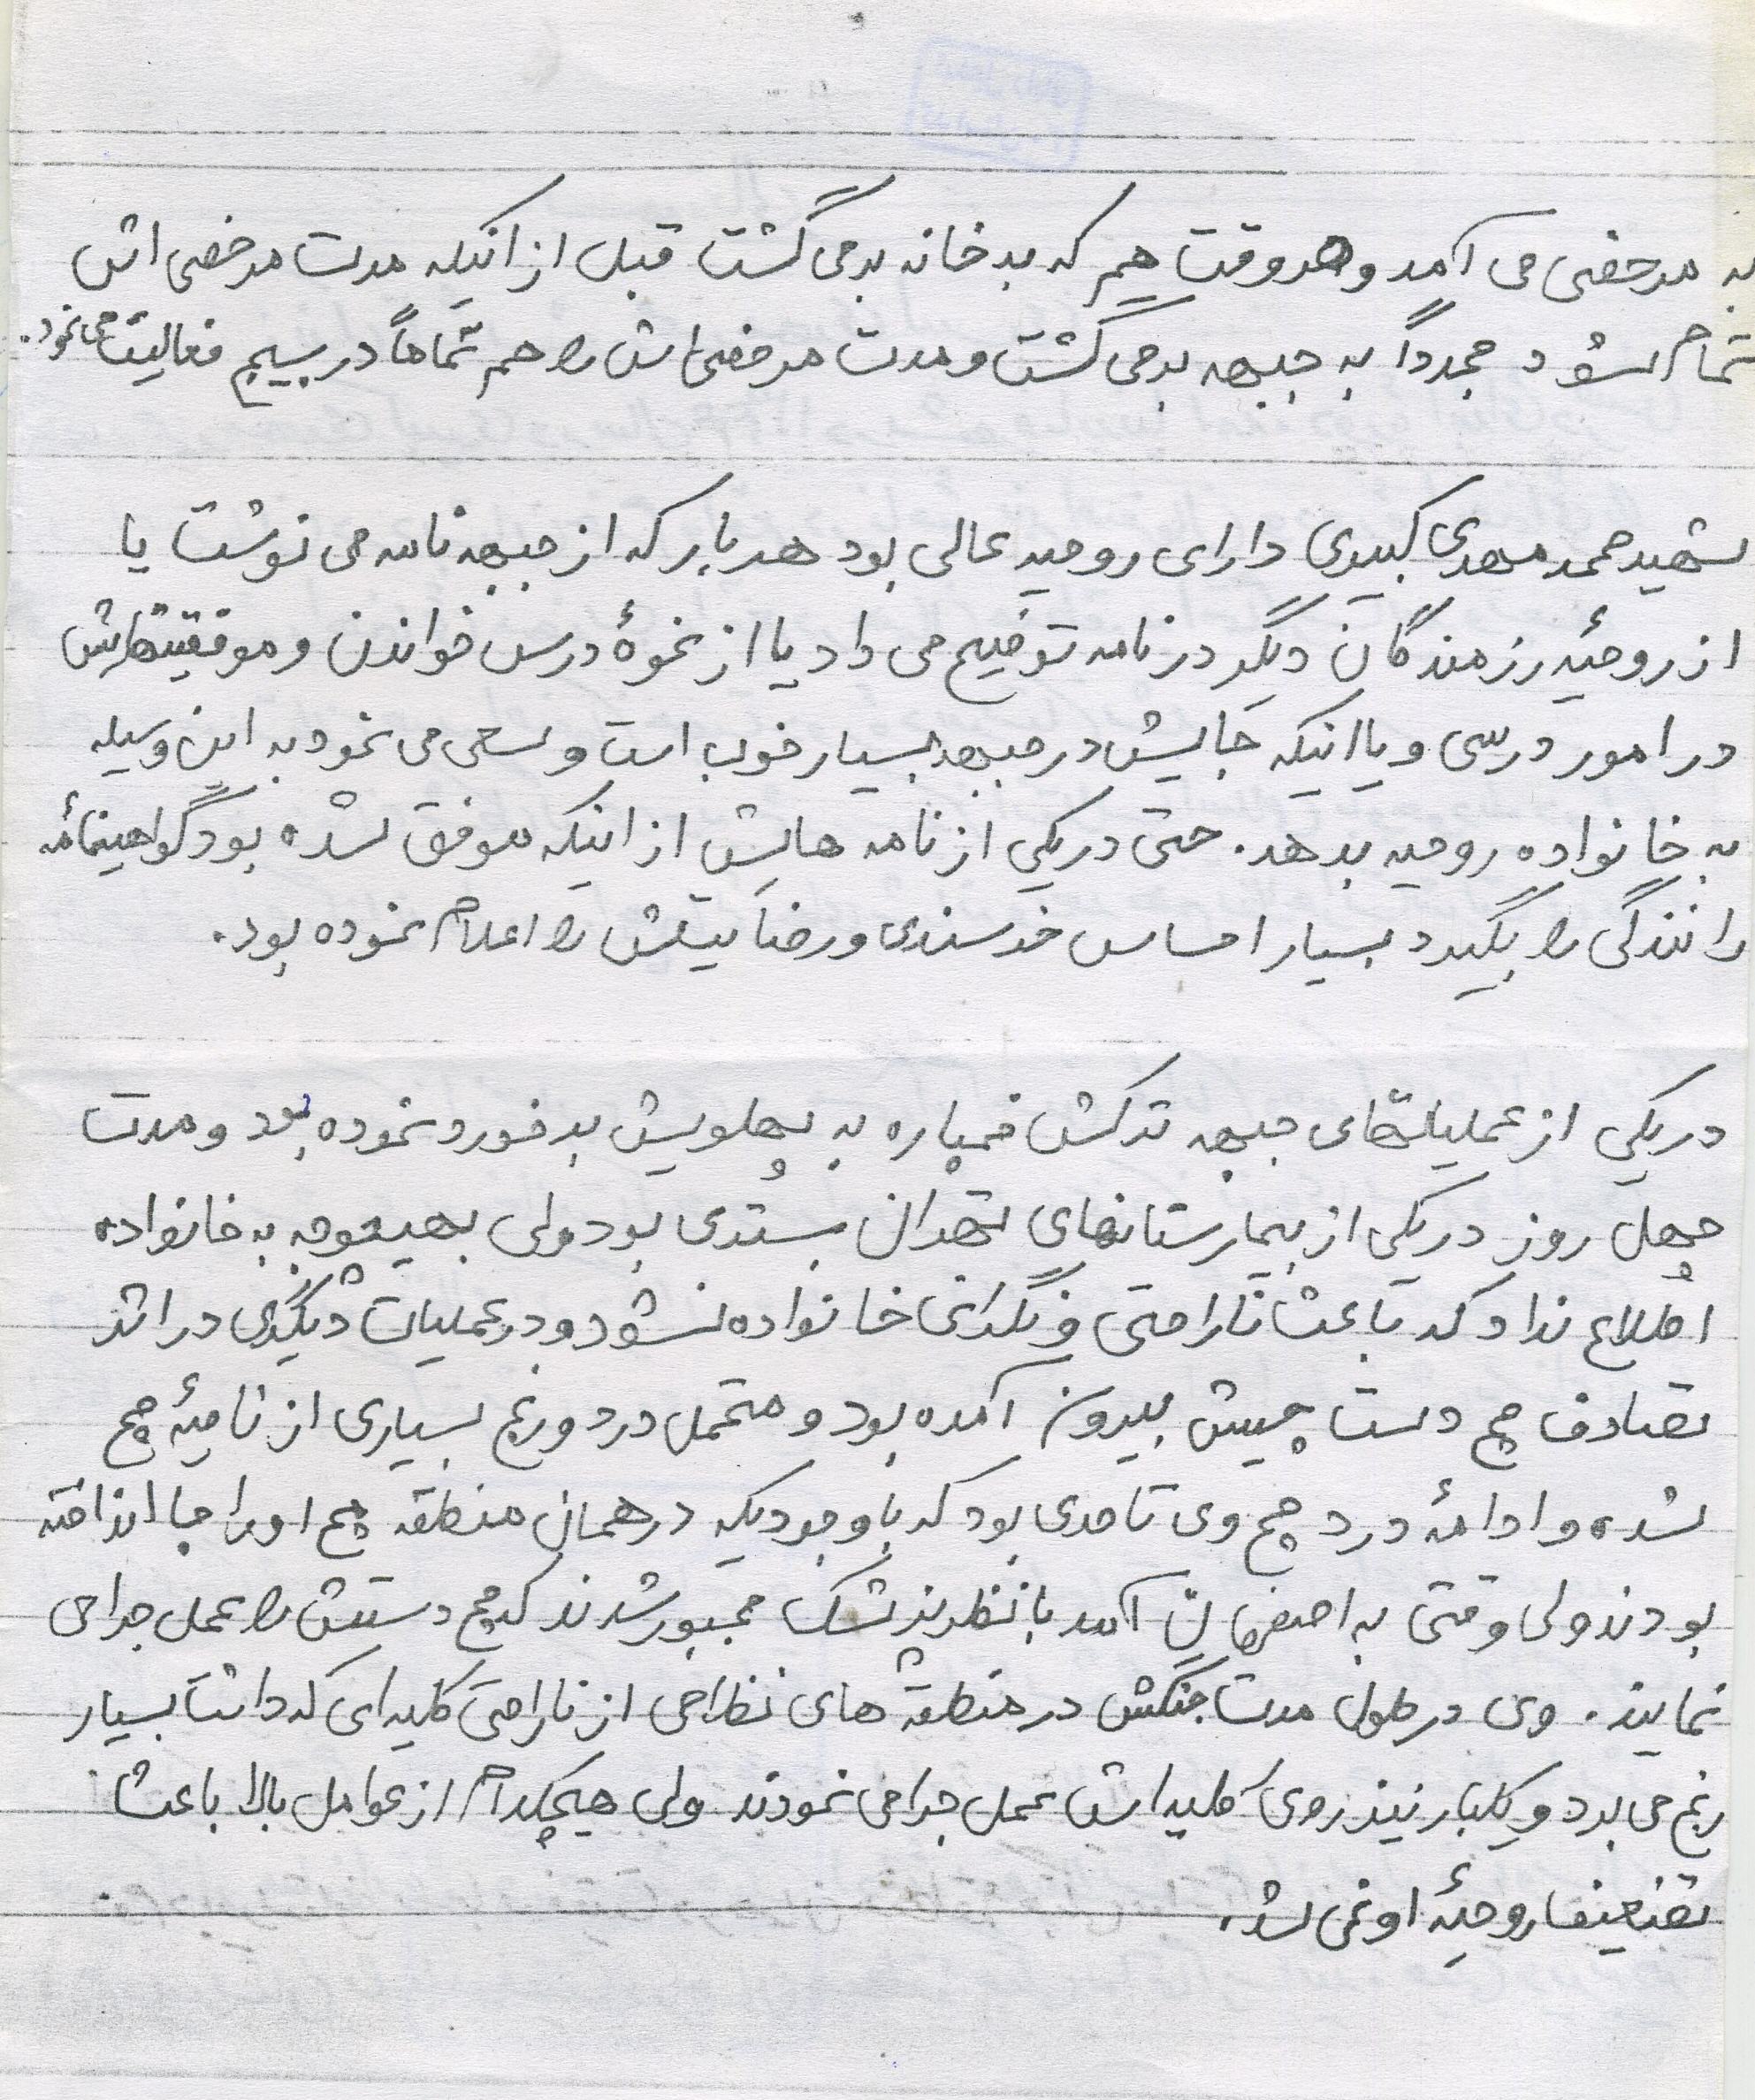 به مرخصی می آمد و هر وقت هم که به خانه برمی گشت قبل از اینکه مدت مرخصی اش
تمام شود مجدداً به جبهه برمی گشت و مدت مرخصی اش را هم تماماً در بسیج فعالیت می نمود.
شهید محمد مهدی کبیری دارای روحیه عالی بود هر بار که از جبهه نامه می نوشت یا
از روحیۀ رزمندگان دیگر در نامه توضیح می داد یا از نحوۀ درس خواندن و موفقیتهایش
در امور درسی و یا اینکه جایش در جبهه بسیار خوب است و سعی می نمود به این وسیله
به خانواده روحیه بدهد. حتی در یکی از نامه هایش از اینکه موفق شده بود گواهینامۀ
رانندگی را بگیرد بسیار احساس خرسندی و رضایتش را اعلام نموده بود.
در یکی از عملیاتهای جبهه ترکش خمپاره به پهلویش برخورد نموده بود و مدت
چهل روز در یکی از بیمارستانهای تهران بستری بود ولی بهیچوجه به خانواده
اطلاع نداد که باعث ناراحتی و نگرانی خانواده نشود و در عملیات دیگری در اثر
تصادف مچ دست چپش بیرون آمده بود و متحمل درد و رنج بسیاری از ناحیۀ مچ
شده و ادامۀ درد مچ وی تا حدی بود که با وجودیکه در همان منطقه مچ او را جا انداخته
بودند ولی وقتی به اصفهان آمد با نظر پزشک مجبور شدند که مچ دستش را عمل جراحی
نمایند. وی در طول مدت جنگش در منطقه های نظامی از ناراحتی کلیه ای که داشت بسیار
رنج می برد و یکبار نیز روی کلیه اش عمل جراحی نمودند ولی هیچکدام از عوامل بالا باعث
تضعیف روحیۀ او نمی شد.